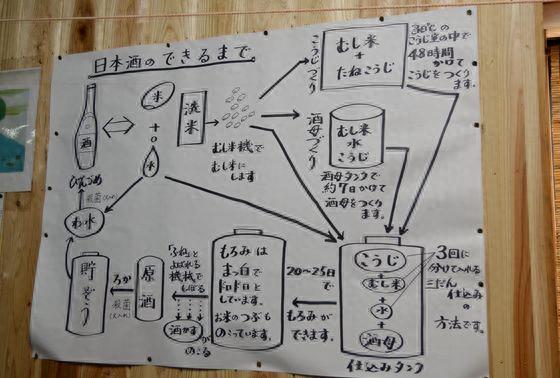 日本酒のできるまで
酒
米
+
水
洗米
むし米機で
むし米に
します
こうじづくり
むし米
+
たねこうじ
30℃の
こうじ室の中で
48時間
かけて
こうじをつくり
ます。
酒母づくり
むし米
水
こうじ
酒母タンクで
約7日かけて
酒母をつくり
ます。
こうじ
+
むし米
+
水
+
酒母
仕込みタンク
3回に
分けて入れる
三だん
仕込みの
方法です。
20〜25日
で
もろみが
できます。
もろみは
まっ白で
ドロドロと
しています。
お米のつぶも
のこっています。
「ふね」と
よばれる
機械で
しぼる
酒かす
がのこる
原酒
ろか
殺菌
(火入れ)
貯ぞう
わり水
殺菌(火入れ)
びんづめ